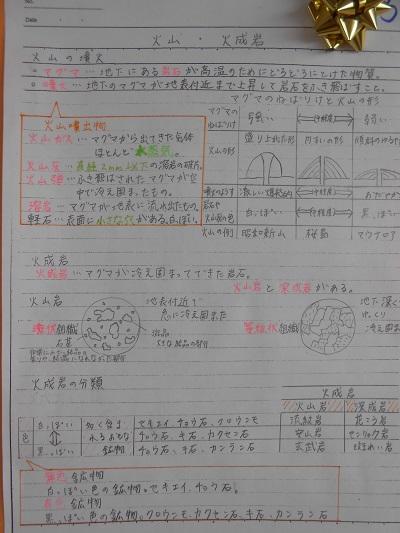 No.
Date
火山・火成岩
火山の噴火
マグマ…地下にある岩石が高温のためにどろどろにとけた物質。
噴火…地下のマグマが地表付近まで上昇して岩石をふき飛ばすこと。
マグマのねばりけと火山の形
火山噴出物
火山ガス…マグマから出てきた気体
ほとんど水蒸気。
火山灰…直径2mm以下の溶岩の破片。
火山弾…ふき飛ばされたマグマが空
中で冷え固まったもの。
溶岩…マグマが地表に流れ出たもの。
軽石…表面に小さな穴がある。白っぽい。
マグマの
ねばりけ
強い
弱い
火山の形
盛り上がった形
円すいの形
噴火のようす
激しい爆発的
おだやか
火山灰の色
白っぽい
黒っぽい
火山の例
昭和新山
桜島
マウナロア
火成岩
火成岩…マグマが冷え固まってできた岩石。
火山岩と深成岩がある。
火山岩
地表付近で
急に冷え固まった
斑状組織
石基
斑晶
大きな結晶の部分
深成岩
等粒状組織
地下深く
ゆっくり
冷え固まった
火成岩の分類
火成岩
火山岩
深成岩
色
白っぽい
黒っぽい
多く含ま
れるおもな
鉱物
セキエイ、チョウ石、クロウンモ
チョウ石、キ石、カクセン石
チョウ石、キ石、カンラン石
流紋岩
花こう岩
安山岩
せんりょく岩
玄武岩
はんれい岩
無色鉱物
白っぽい色の鉱物。セキエイ、チョウ石。
有色鉱物
黒っぽい色の鉱物。クロウンモ、カクセン石、キ石、カンラン石